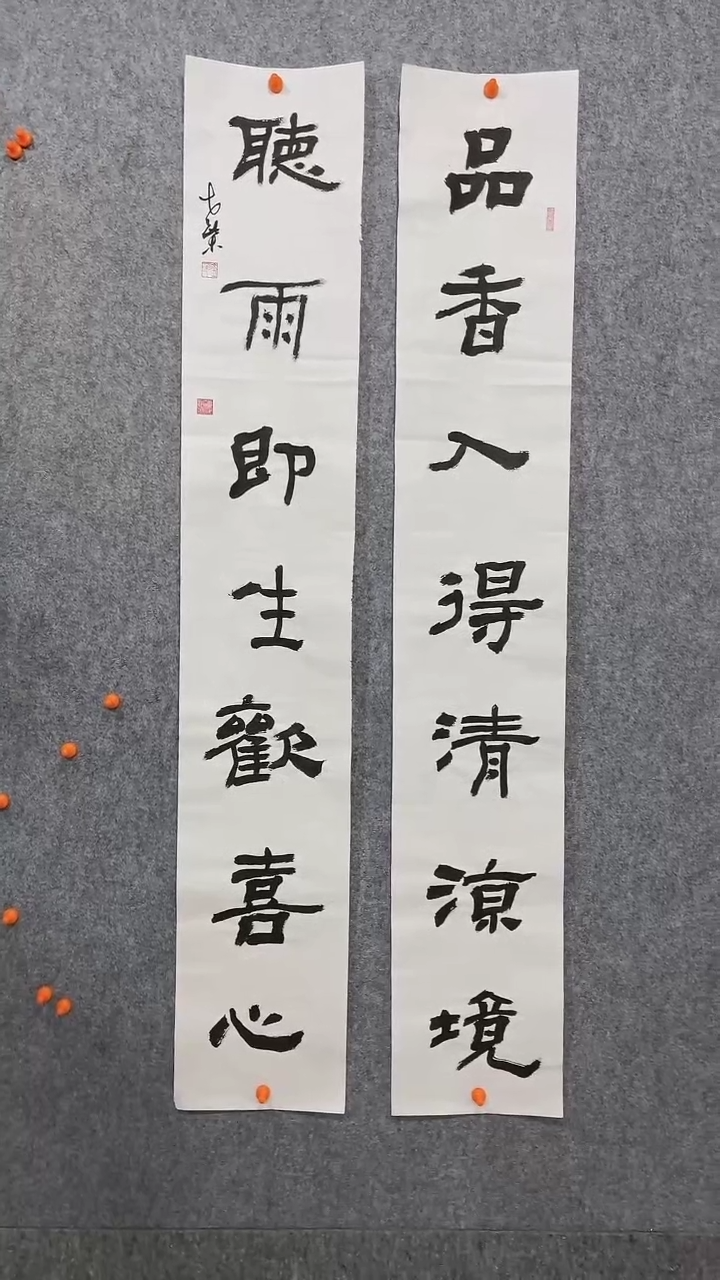 品香入得清涼境
聽雨即生歡喜心